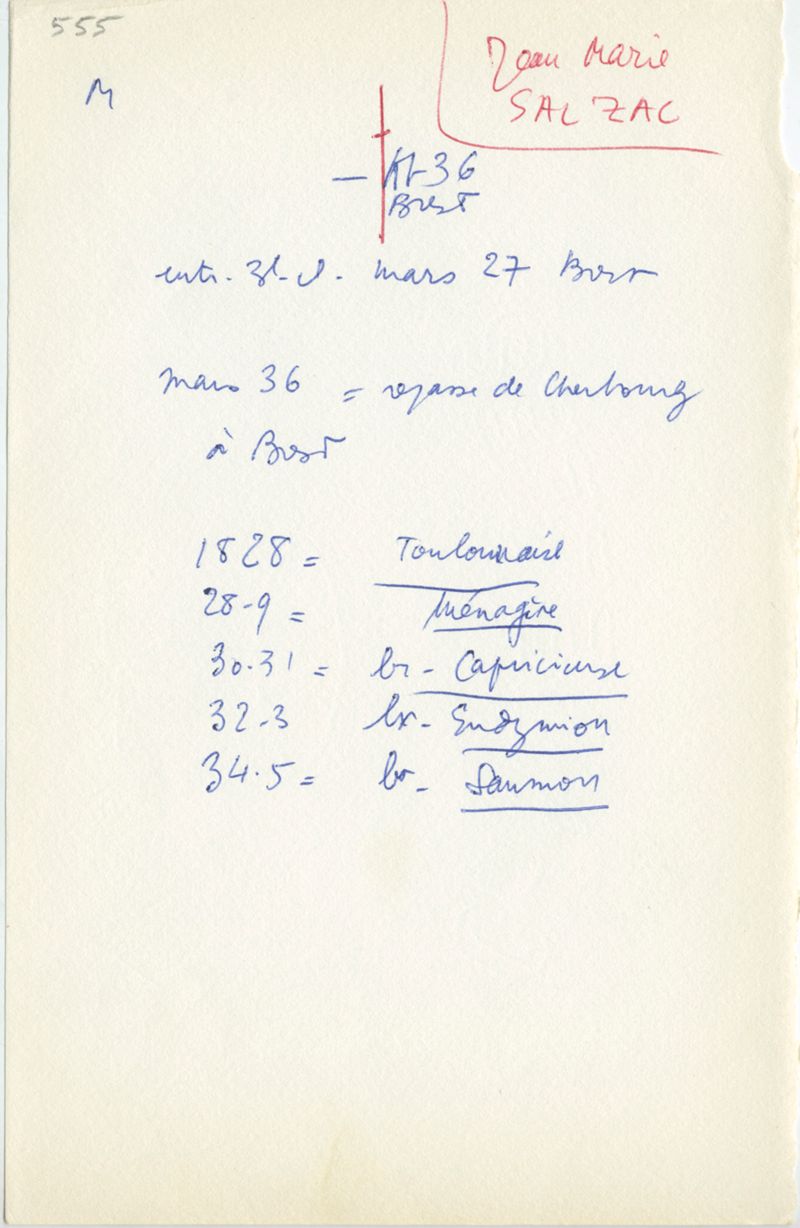 555
Jean Marie
SALZAC
M
- 36
Brest
entr. mars 27 Brest
mars 36 = repasse de Cherbourg
à Brest
1828 = Toulonnaise
28-9 = Ménagère
30.31 = br - Capricieuse
32-3 bx - Endymion
34.5 = br - Saumon